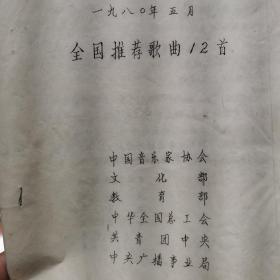 一九八〇年五月
全国推荐歌曲12首
中国音乐家协会
文化部
教育部
中华全国总工会
共青团中央
中央广播事业局